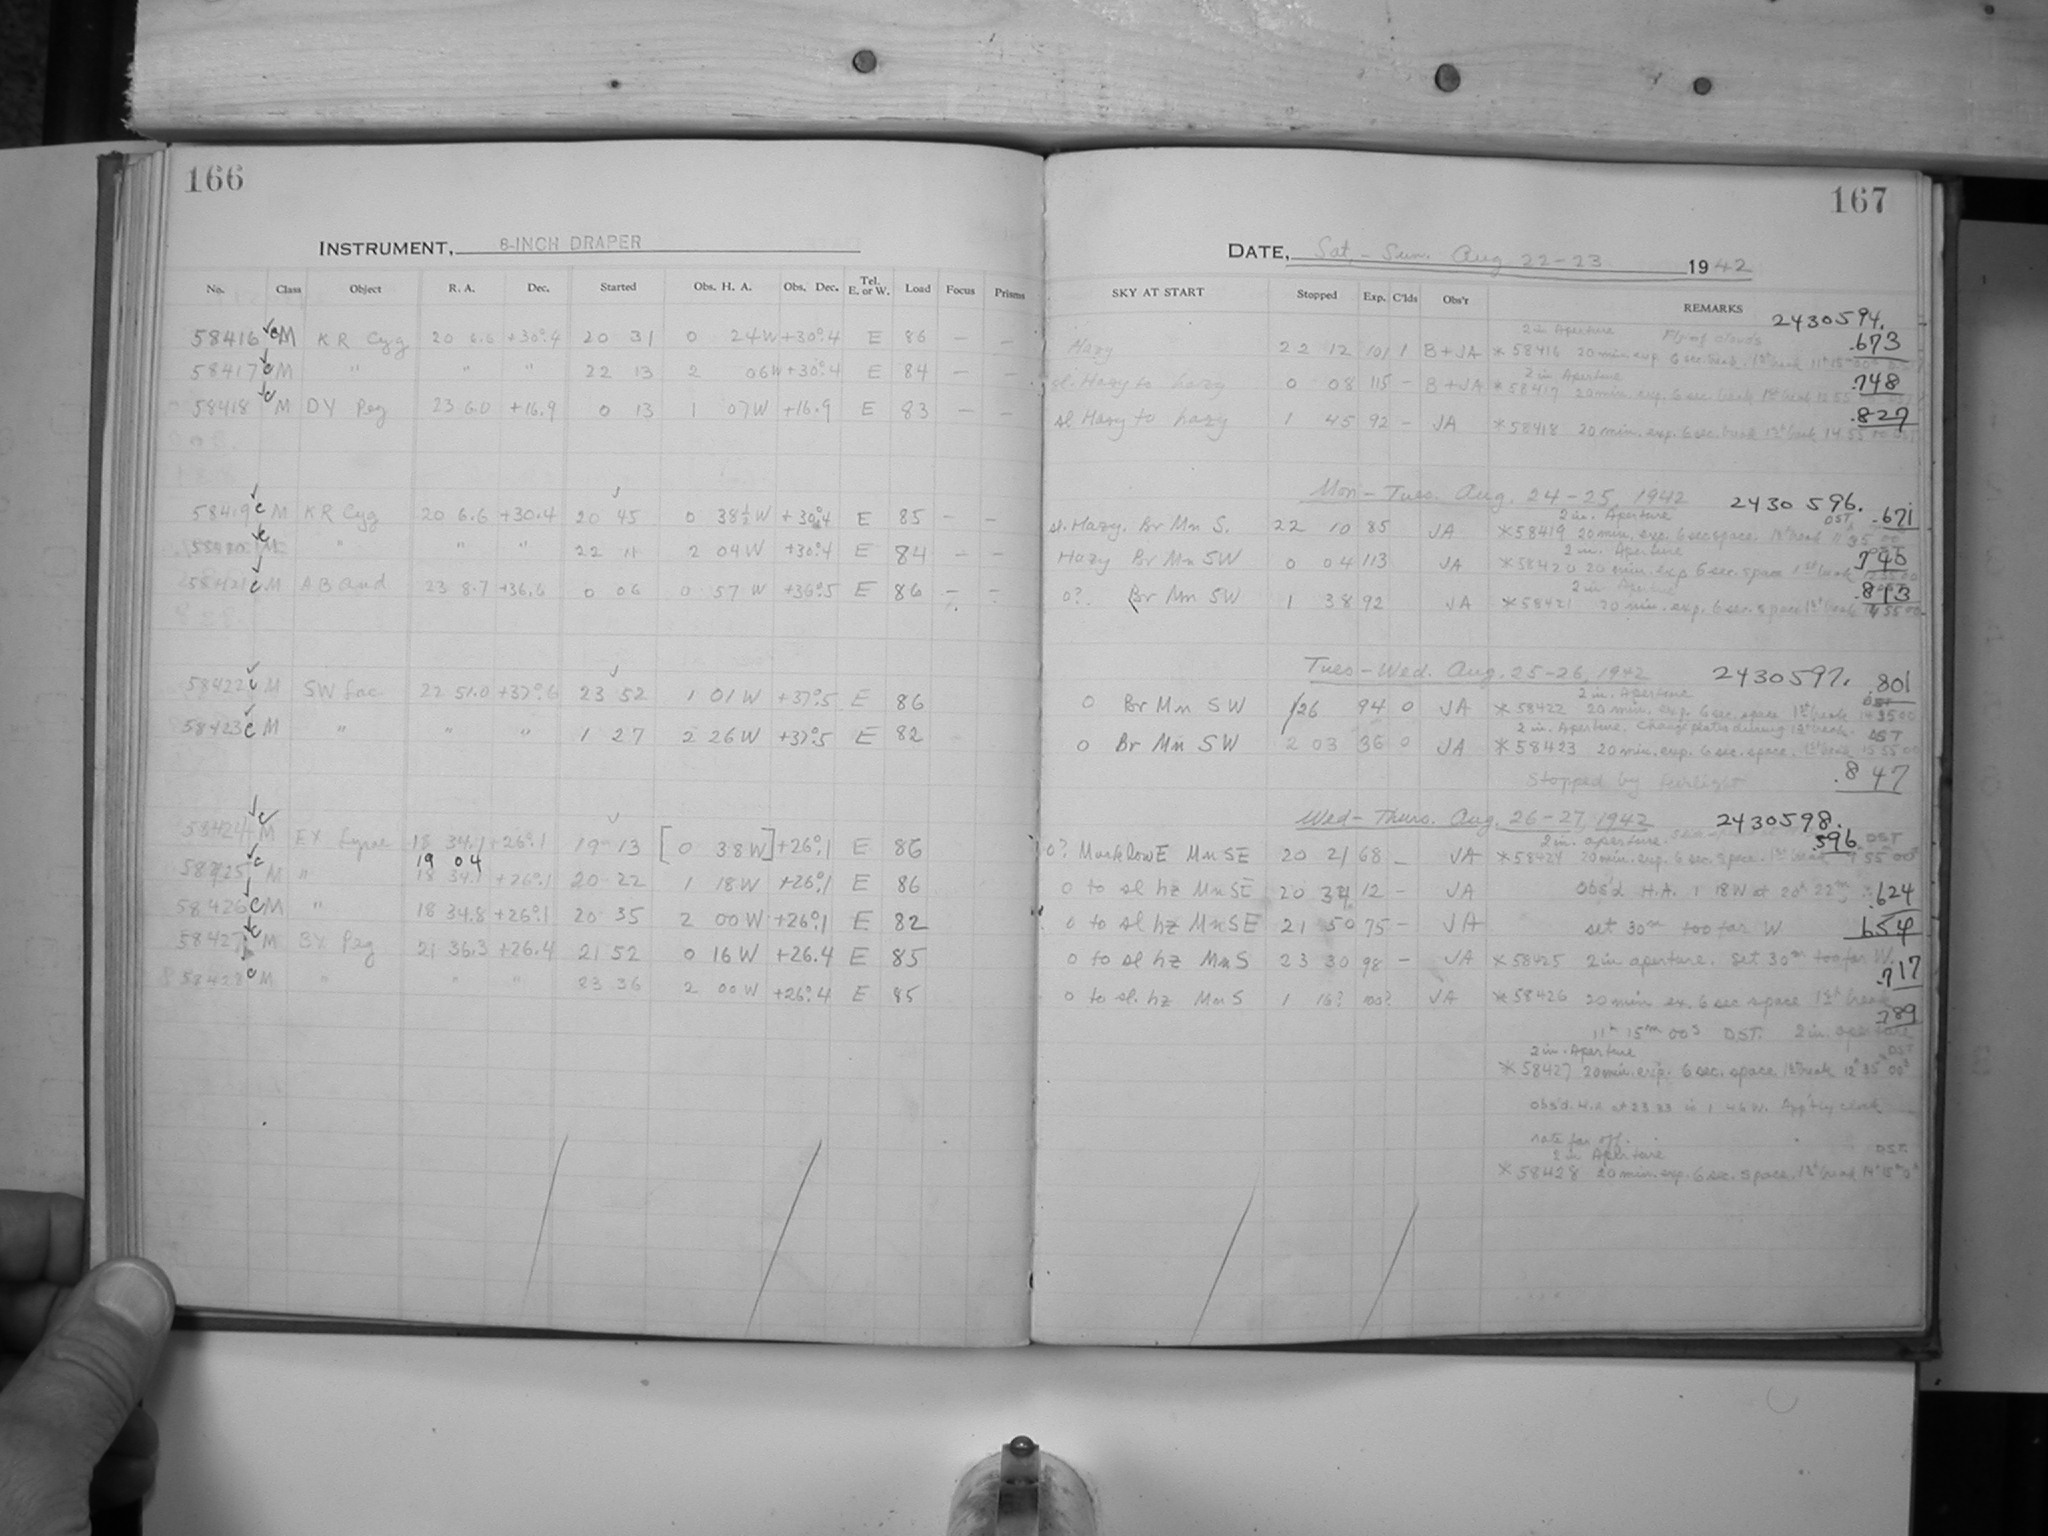 166
INSTRUMENT, 8-INCH DRAPER
No. Class Object R. A. Dec. Started Obs. H. A. Obs. Dec. Tel. E. or W. Load Focus Prisms
58416 c M KR Cyg 20 6.6 +30°.4 20 31 0 24W +30°.4 E 86 — —
58417 c M " " " 22 13 2 06W +30°.4 E 84 — —
58418 c M DY Peg 23 6.0 +16.9 0 13 1 07W +16.9 E 83 — —
58419 c M KR Cyg 20 6.6 +30.4 20 45 0 38½W +30°.4 E 85 — —
c M " " " 22 11 2 04W +30°.4 E 84 — —
58421 c M AB And 23 8.7 +36.6 0 06 0 57 W +36°.5 E 86 — —
58422 c M SW Lac 22 51.0 +37°.6 23 52 1 01 W +37°.5 E 86
58423 c M " " " 1 27 2 26W +37°.5 E 82
58424 c M EX Lyrae 18 34.1 +26°.1 19 13 [0 38W] +26°.1 E 86
19 04
58425 c M " 18 34.1 +26°.1 20 22 1 18W +26°.1 E 86
58426 c M " 18 34.8 +26°.1 20 35 2 00W +26°.1 E 82
58427 c M BX Peg 21 36.3 +26.4 21 52 0 16W +26.4 E 85
58428 c M " " " 23 36 2 00W +26°.4 E 85
167
DATE, Sat. - Sun. Aug 22-23 1942
SKY AT START Stopped Exp. C'lds Obs'r REMARKS
2430594.
2 in Aperture Flying clouds
Hazy 22 12 101 1 B+JA *58416 20 min. exp. 6 sec. break. 1st break 11h 15m 00s .673
2 in Aperture
sl. Hazy to hazy 0 08 115 — B+JA *58417 20 min. exp. 6 sec. break 1st break 12 55 .748
sl Hazy to hazy 1 45 92 — JA *58418 20 min. exp. 6 sec. break 1st break 14 55 .827
Mon - Tues. Aug. 24-25, 1942 2430 596.
2 in. Aperture DST .671
sl. Hazy. Br Mn S. 22 10 85 JA *58419 20 min. exp. 6 sec space. 1st break 11 35 00
2 in. Aperture
Hazy Br Mn SW 0 04 113 JA *58420 20 min. exp 6 sec. space 1st break
2 in Aperture
0? Br Mn SW 1 38 92 JA *58421 20 min. exp. 6 sec. space 1st break 14 55 00
Tues - Wed. Aug. 25-26, 1942 2430597. .801
2 in. Aperture DST
0 Br Mn SW 1 26 94 0 JA *58422 20 min. exp. 6 sec. space 1st break 14 35 00
2 in. Aperture. Change plates during 1st break. DST
0 Br Mn SW 2 03 36 0 JA *58423 20 min. exp. 6 sec. space. 1st break. 15 55 00
Stopped by .847
Wed - Thurs. Aug. 26-27, 1942 2430598.
2 in. aperture. .596 DST
0? Murk low E Mn SE 20 21 68 — JA *58424 20 min. exp. 6 sec. space. 1st break 9 55 00
0 to sl hz Mn SE 20 34 12 — JA Obs'd H.A. 1 18W at 20h 22m .624
0 to sl hz Mn SE 21 50 75 — JA set 30m too far W .654
0 to sl hz Mn S 23 30 98 — JA *58425 2 in aperture. Set 30m too far W. .717
0 to sl. hz Mn S 1 16? 100? JA *58426 20 min ex. 6 sec space 1st break .789
11h 15m 00s DST. 2 in. aperture
2 in. Aperture DST
*58427 20 min. exp. 6 sec. space. 1st break 12h 35m 00s
Obs'd. H.A at 23 33 is 1 46 W. App'tly clock
rate far off.
2 in Aperture DST.
*58428 20 min. exp. 6 sec. space. 1st break 14h 15m 0s